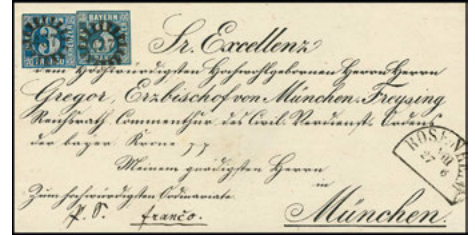 BAYERN
FRANCO
Sr. Excellenz
dem Hochwürdigsten Hochwohlgebornen Herrn Herrn
Gregor, Erzbischof von München-Freysing
Reichsrath Commenthür des Civil-Verdienst-Ordens
der bayer. Krone
Meinem gnädigsten Herrn
in
Zum hochwürdigsten Ordinariate
München.
P. S. franco.